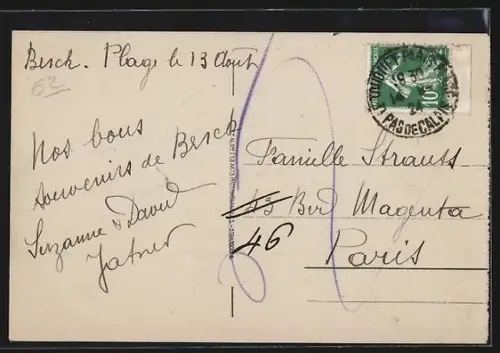 Berck. Plage le 13 Août
62
Nos bons
souvenirs de Berck
Suzanne & David
Famille Strauss
43 Bvd Magenta
46
Paris
10
PAS DE CALAIS